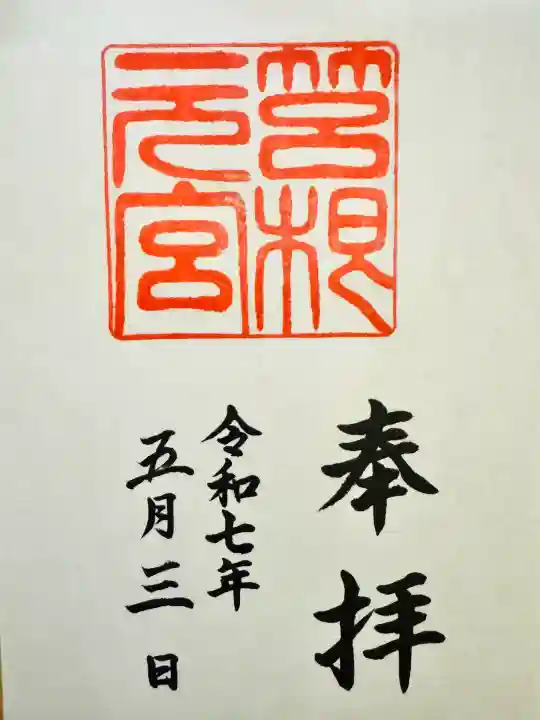 筥根
元宮
奉拝
令和七年
五月三日